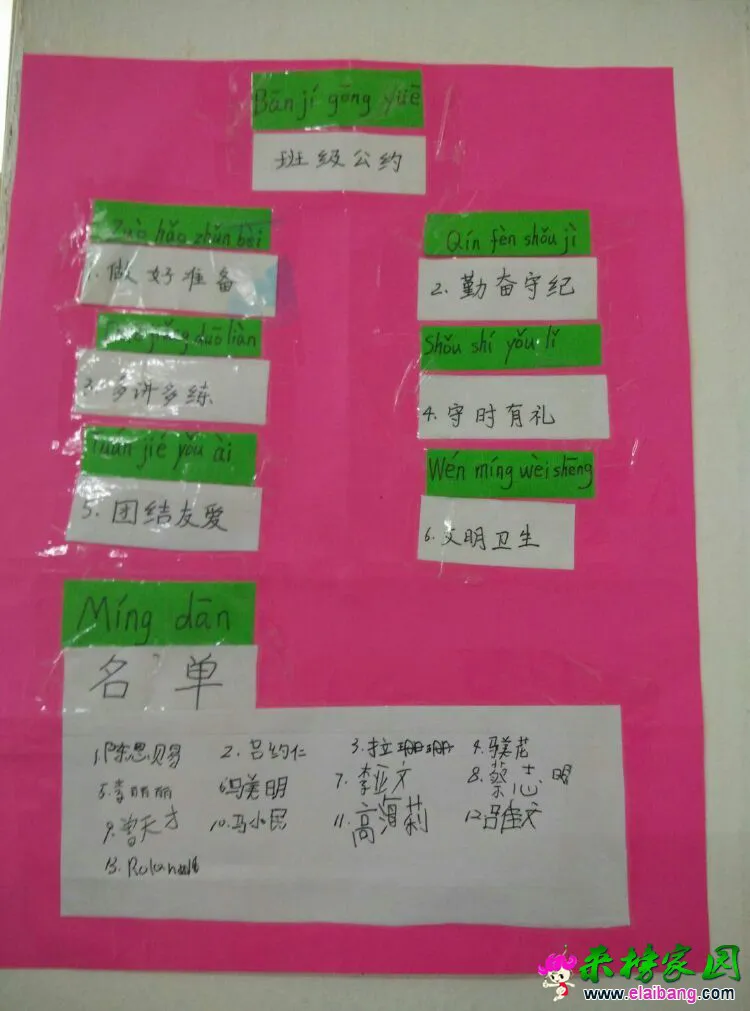 Bān jí gōng yuē
班级公约
Zuò hǎo zhǔn bèi
1. 做好准备
Qín fèn shǒu jì
2. 勤奋守纪
duō liàn
3. 多讲多练
Shǒu shí yǒu lǐ
4. 守时有礼
Tuán jié yǒu ài
5. 团结友爱
Wén míng wèi shēng
6. 文明卫生
Míng dān
名单
1. 陈思赐 2. 吕约仁 3. 拉珊珊 4.
5. 李丽丽 6. 冯美明 7. 李亚文 8. 蔡志明
9. 曾天才 10. 马小民 11. 高海莉 12. 吕佳文
13.
来榜家园
www.elaibang.com